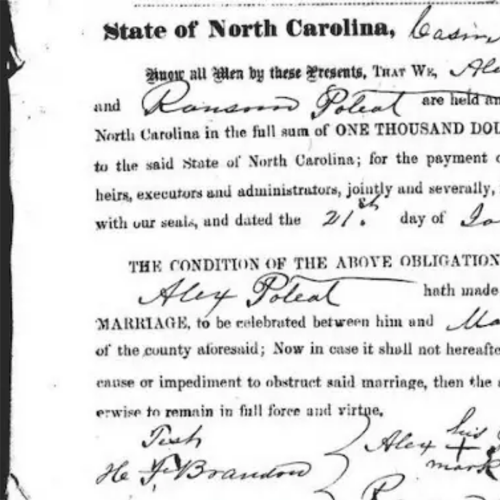 State of North Carolina, Casw
Know all Men by these Presents, THAT WE, Ale
and Ransom Poteat are held an
North Carolina in the full sum of ONE THOUSAND DOL
to the said State of North Carolina; for the payment o
heirs, executors and administrators, jointly and severally,
with our seals, and dated the 21.st day of Ja
THE CONDITION OF THE ABOVE OBLIGATION
Alex Poteat hath made
MARRIAGE, to be celebrated between him and Ma
of the county aforesaid; Now in case it shall not hereafte
cause or impediment to obstruct said marriage, then the
erwise to remain in full force and virtue.
Test
his
Alex +
mark
Brandon